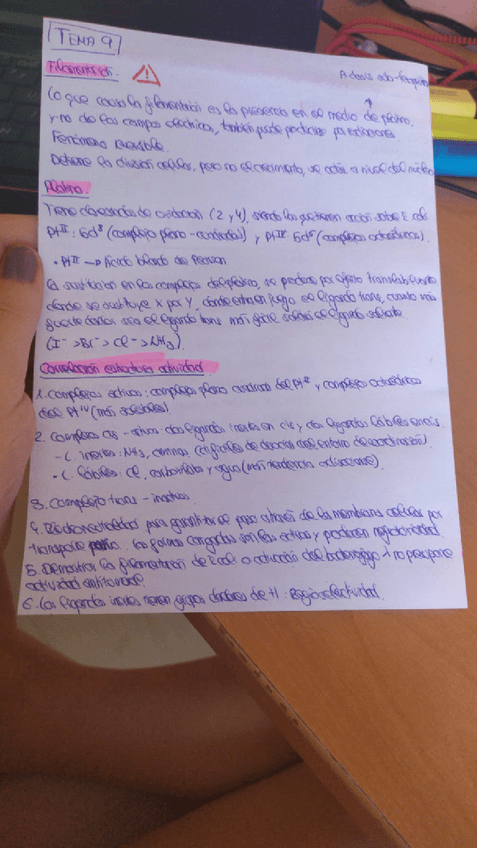 TEMA 9
Filamentación. A dosis
Lo que causa la filamentación es la presencia en el medio de platino,
y no de los campos eléctricos, también puede producirse por
Fenómeno reversible.
Detiene la división celular, pero no el crecimiento, se actúa a nivel del
Platino.
Tiene dos estados de oxidación (2 y 4), siendo los que tienen acción sobre E. coli
PtII: 5d8 (complejo plano-cuadrado) y PtIV 5d6 (complejos octaédricos).
• PtII → Ácido blando de Pearson
La sustitución en los complejos de platino, se produce por efecto trans
donde se sustituye X por Y, donde entra en juego el ligando trans, cuanto más
fuerte dador sea el ligando trans más fácil saldrá el ligando saliente.
(I- > Br- > Cl- > NH3).
Correlación estructura actividad
1. Complejos activos: complejos plano cuadrado del PtII y complejos octaédricos
del PtIV (más solubles)
2. Complejo cis-activo: dos ligandos inertes en cis y dos ligandos lábiles en cis.
- L. inertes: NH3, aminas (difíciles de desplazar del entorno de coordinación)
- L. lábiles: Cl, carboxilatos y agua (más tendencia a disociarse)
3. Complejo trans - inactivos
4. Electroneutralidad para garantizar el paso a través de la membrana celular por
transporte Las formas cargadas son las activas y producen nefrotoxicidad
5. Demostrar la filamentación de E. coli o activación del bacteriófago λ no presupone
actividad antitumoral.
6. Los ligandos inertes tienen grupos dadores de H: Regioselectividad.